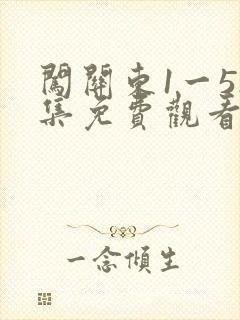 闖關東1一5
集免費觀看
一念傾生